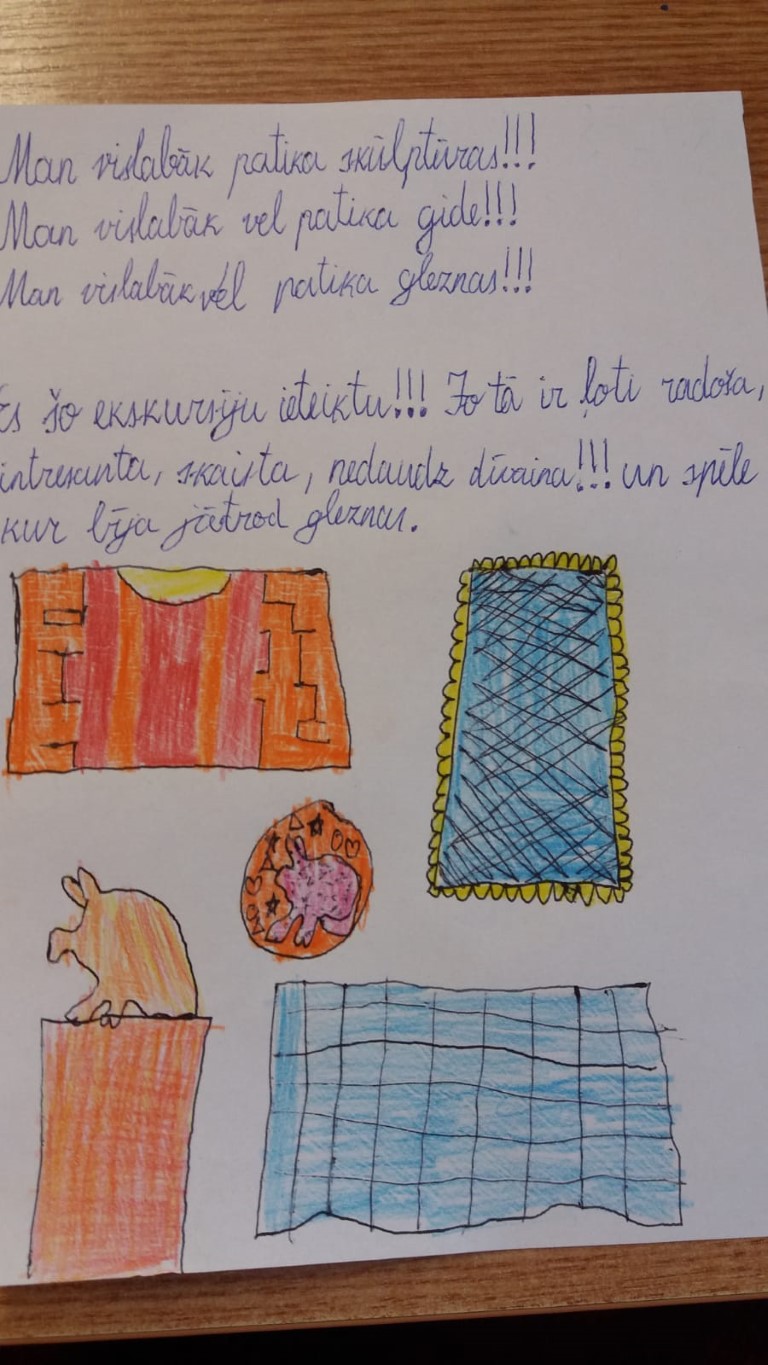 Man vislabāk patika skūlptūras!!!
Man vislabāk vel patika gide!!!
Man vislabāk vēl patika gleznas!!!
Es šo ekskursiju ieteiktu!!! Jo tā ir ļoti radoša,
intresanta, skaista, nedaudz dīvaina!!! un spēle
kur bija jātrod gleznas.